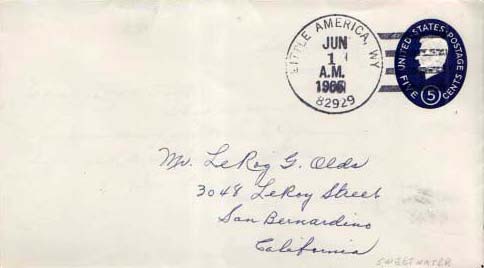 LITTLE AMERICA, WY
JUN
1
A.M.
82929
UNITED STATES POSTAGE
FIVE 5 CENTS
Mr. LeRoy G. Olds
3048 LeRoy Street
San Bernardino
California
SWEETWATER